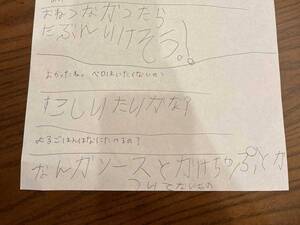 おねつなかったら
たぶんいけそう!
よかったね。ベロはいたくないの?
すこしいたいかな?
よるごはんはなにたべるの?
なんかソースとかけちゃぷとか
つけてないもの